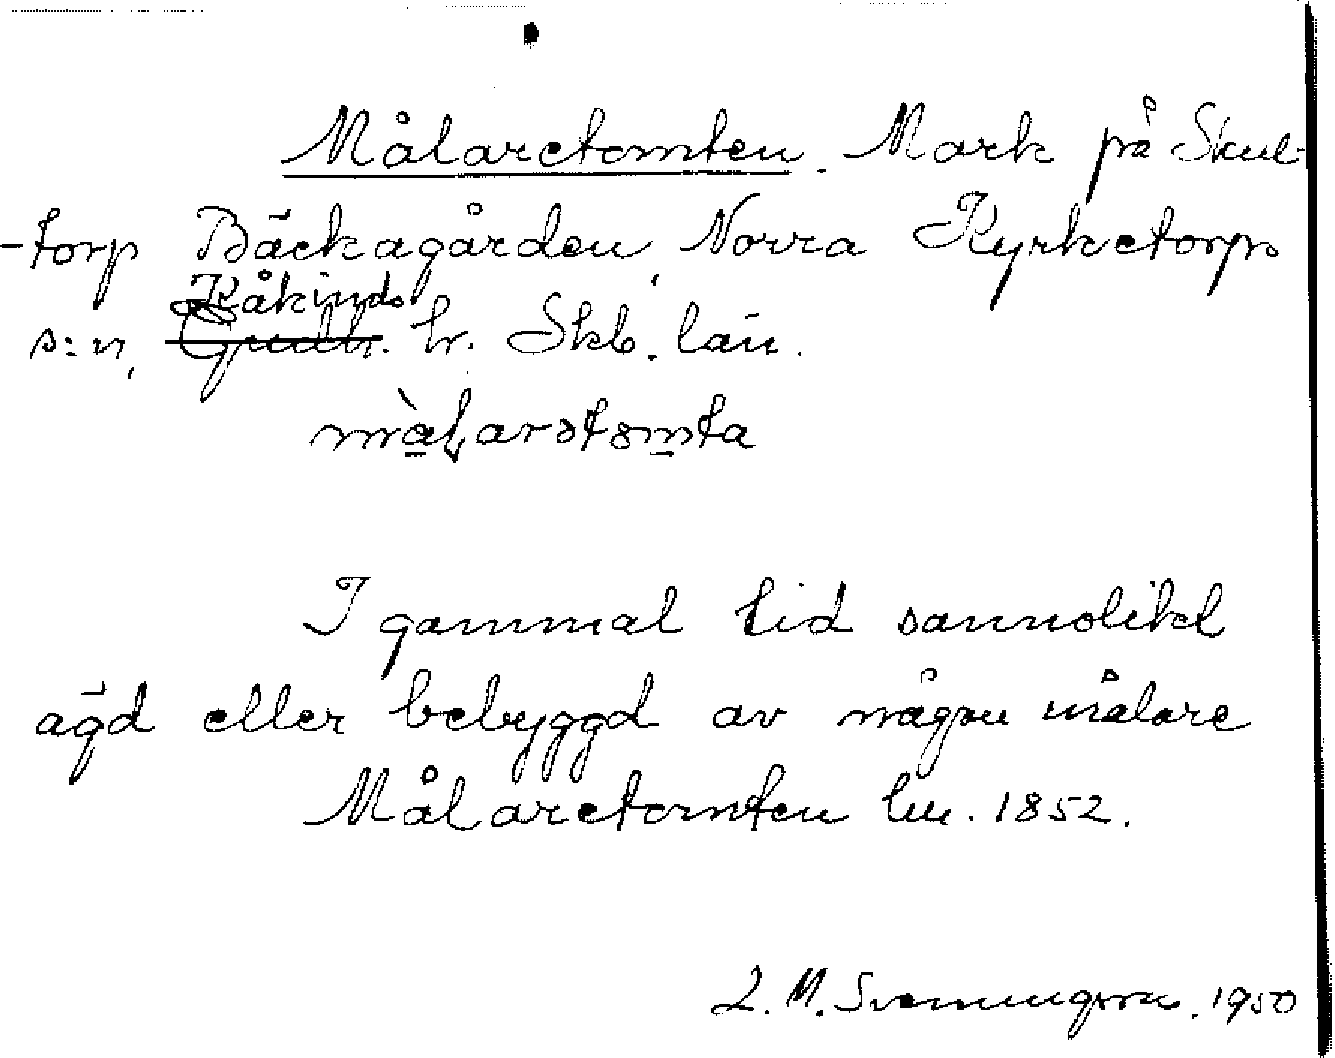 Målaretomten. Mark på Skul-
-torp Bäckagården, Norra Kyrketorps
Kåkinds
s:n, Gudh. hr. Skb. län.
I gammal tid sannolikt
ägd eller bebyggd av någon målare
Målaretomten lm. 1852.
L. M. Svenungsson. 1950